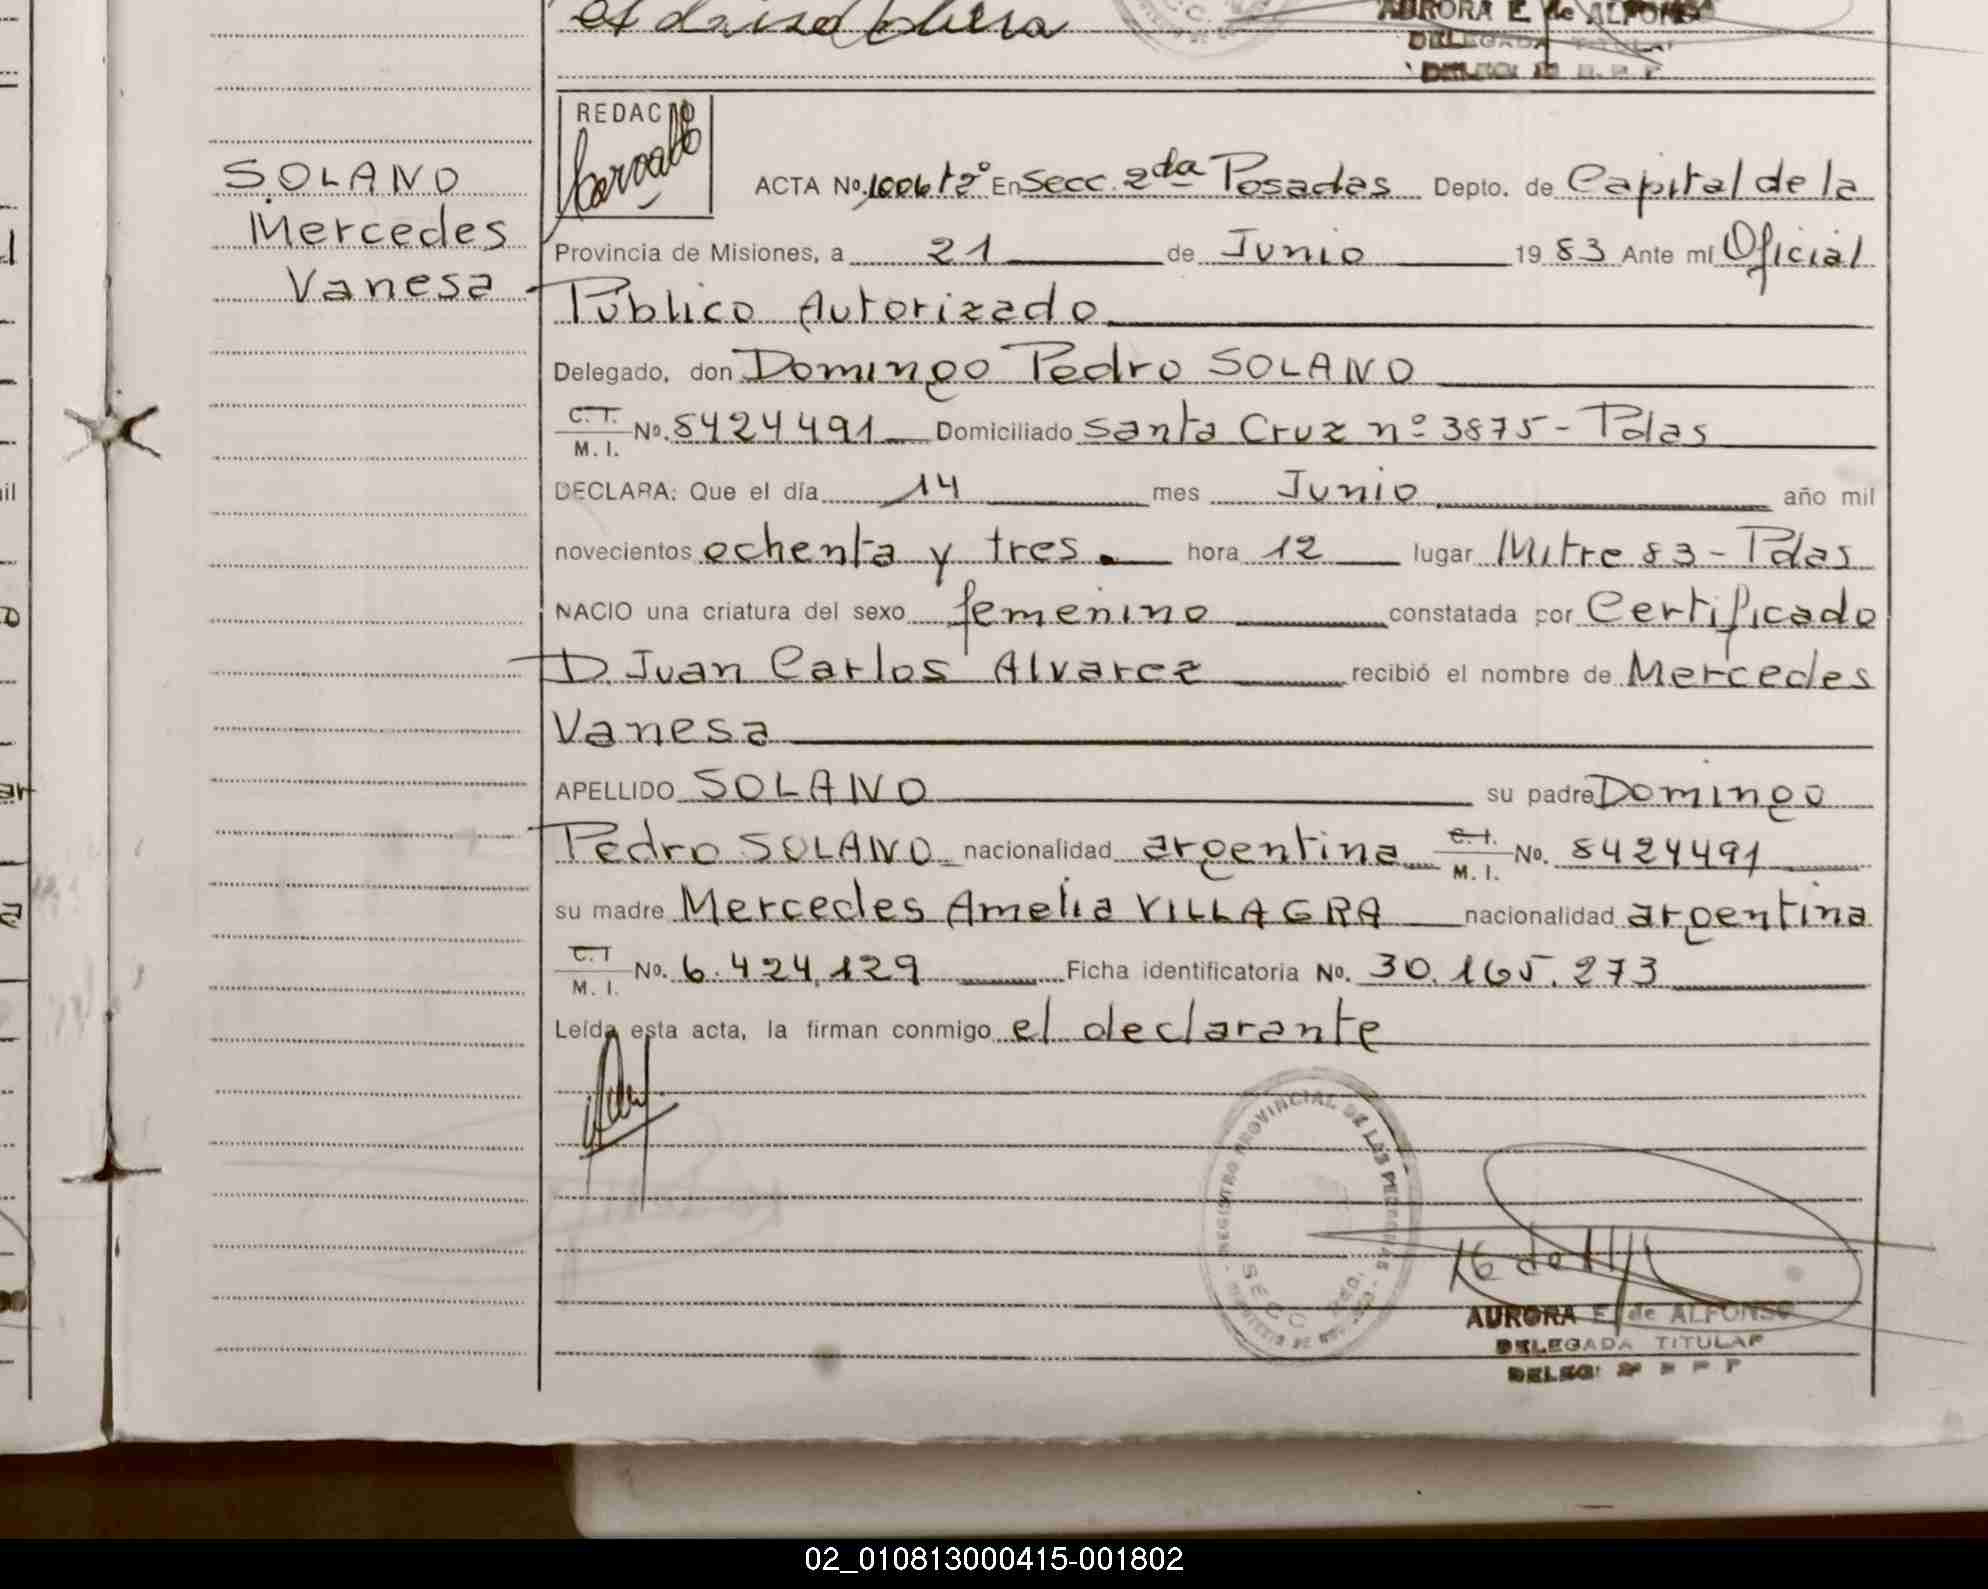 AURORA E de ALFONSO
DELEGADA TITULAR
REDACTO
SOLANO
Mercedes
Vanesa
ACTA No. 1006 tº 2º En Secc. 2da Posadas Depto. de Capital de la
Provincia de Misiones, a 21 de Junio 1983 Ante mí Oficial
Público Autorizado
Delegado, don Domingo Pedro SOLANO
C.I. M.I. No. 8424491 Domiciliado Santa Cruz nº 3875 - Pdas
DECLARA: Que el día 14 mes Junio año mil
novecientos ochenta y tres. hora 12 lugar Mitre 83 - Pdas
NACIO una criatura del sexo femenino constatada por Certificado
D. Juan Carlos Alvarez recibió el nombre de Mercedes
Vanesa
APELLIDO SOLANO su padre Domingo
Pedro SOLANO nacionalidad argentina C.I. M.I. No. 8424491
su madre Mercedes Amelia VILLAGRA nacionalidad argentina
C.I M.I. No. 6.424.129 Ficha identificatoria No. 30.165.273
Leída esta acta, la firman conmigo el declarante
REGISTRO PROVINCIAL DE LAS PERSONAS
SECC
AURORA E. de ALFONSO
DELEGADA TITULAR
02_010813000415-001802